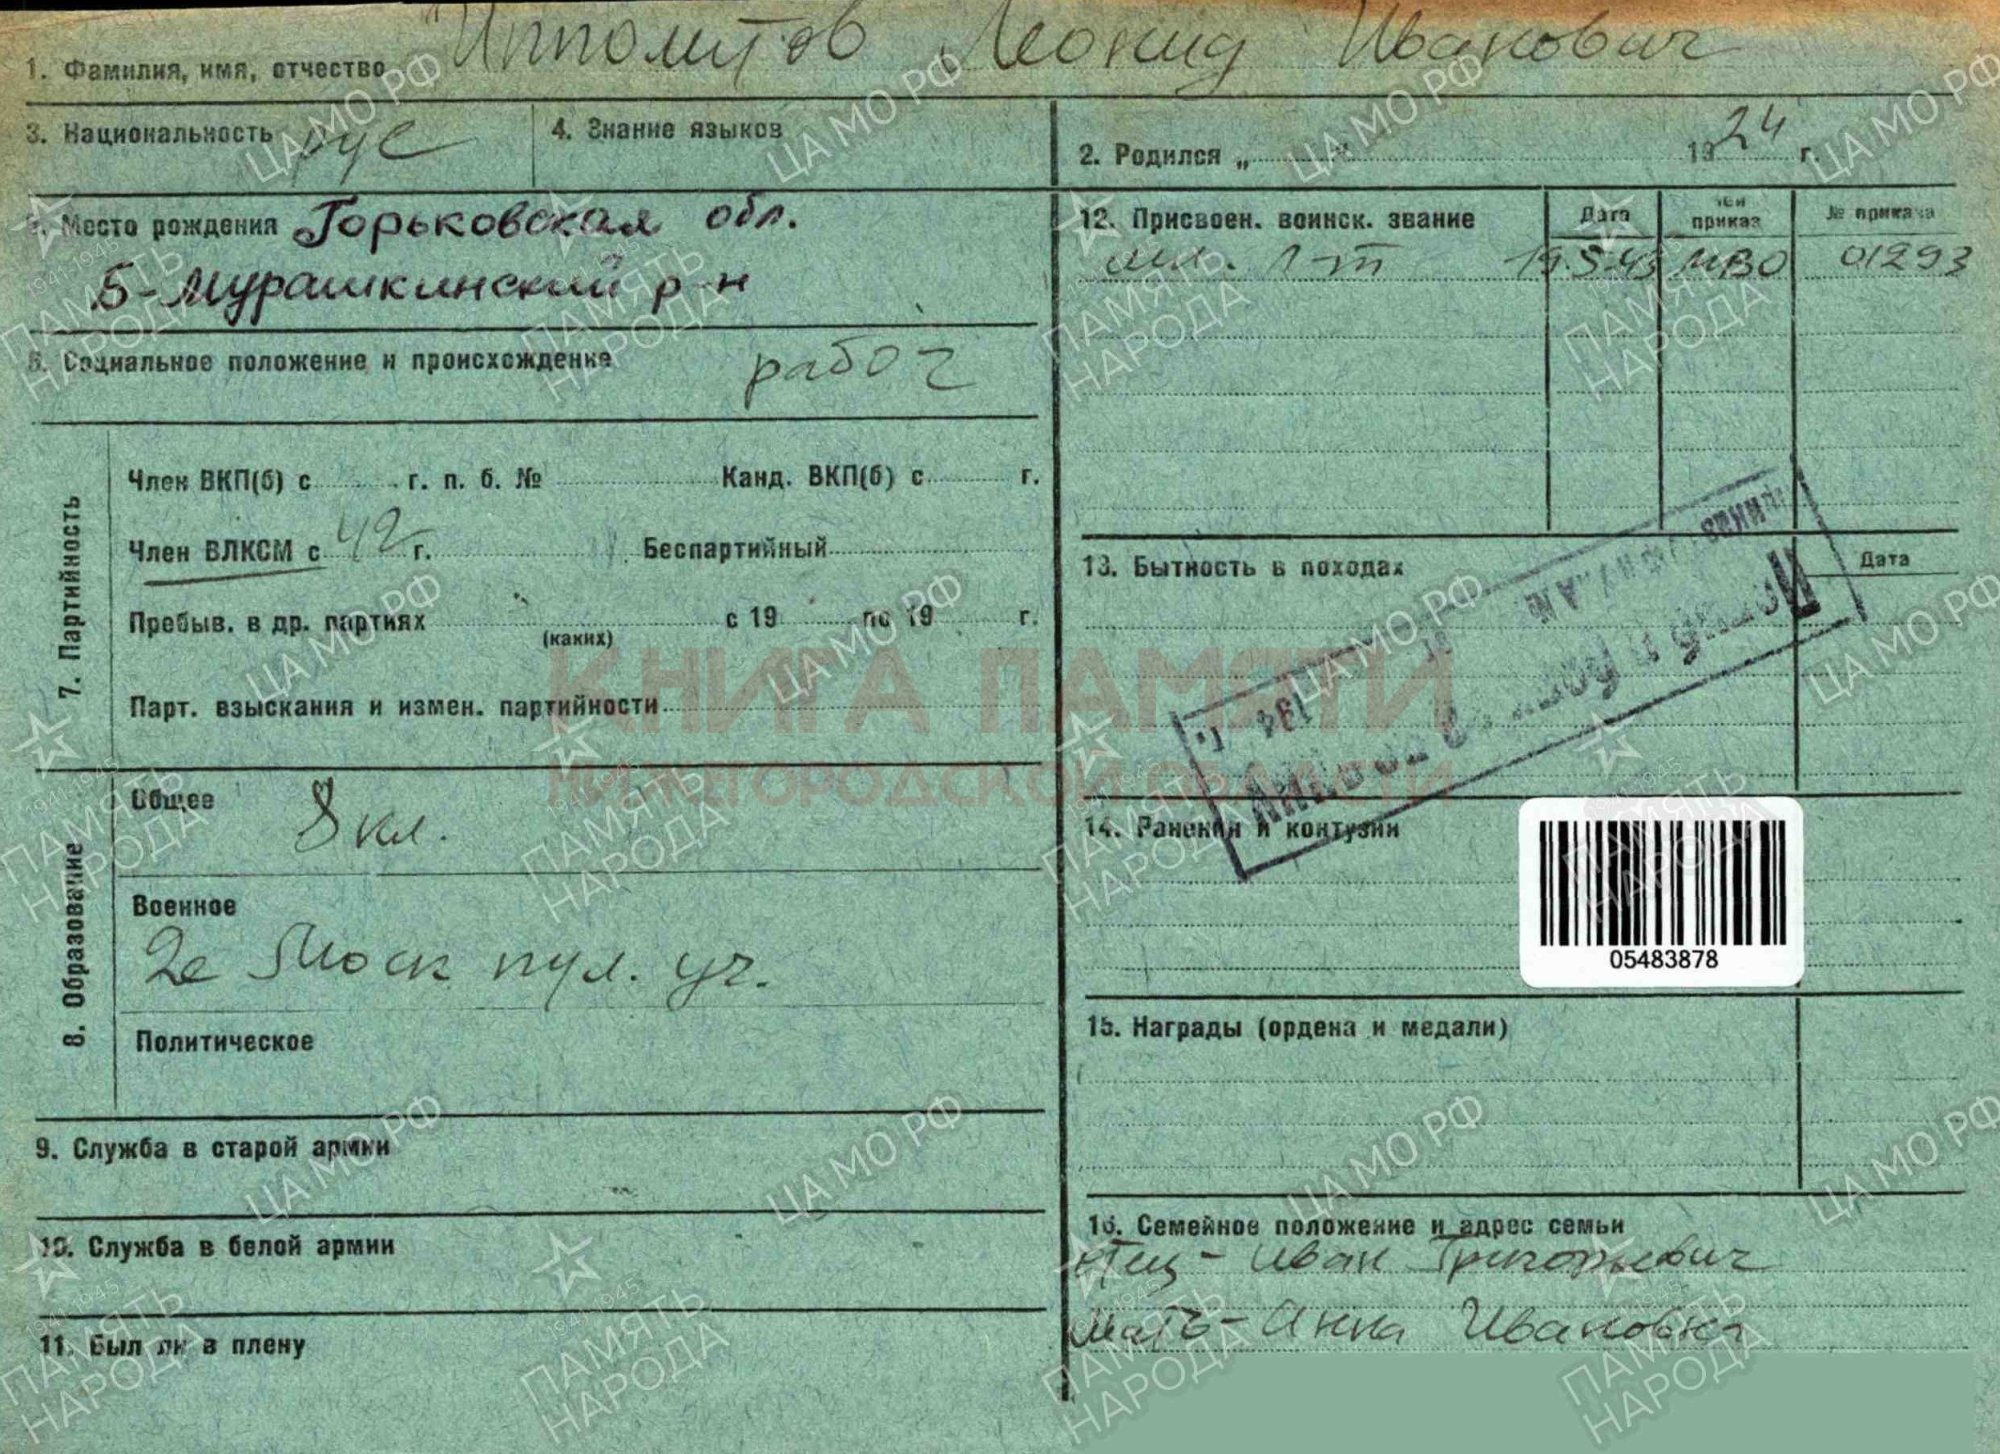 1. Фамилия, имя, отчество Ипполитов Леонид Иванович
3. Национальность рус
4. Знание языков
2. Родился „ " 1924 г.
5. Место рождения Горьковская обл.
Б-Мурашкинский р-н
6. Социальное положение и происхождение рабоч
7. Партийность
Член ВКП(б) с г. п. б. № Канд. ВКП(б) с г.
Член ВЛКСМ с 42 г. Беспартийный
Пребыв. в др. партиях (каких) с 19 по 19 г.
Парт. взыскания и измен. партийности
8. Образование
Общее 8 кл.
Военное
2е Моск пул. уч.
Политическое
9. Служба в старой армии
10. Служба в белой армии
11. Был ли в плену
12. Присвоен. воинск. звание Дата чей приказ № приказа
мл. л-т 19.5.43 МВО 01293
13. Бытность в походах Дата
194 г.
14. Ранения и контузии
05483878
15. Награды (ордена и медали)
16. Семейное положение и адрес семьи
Отец - Иван Григорьевич
Мать - Анна Ивановна
КНИГА ПАМЯТИ
НИЖЕГОРОДСКОЙ ОБЛАСТИ
ЦА МО РФ
1941-1945
ПАМЯТЬ
НАРОДА